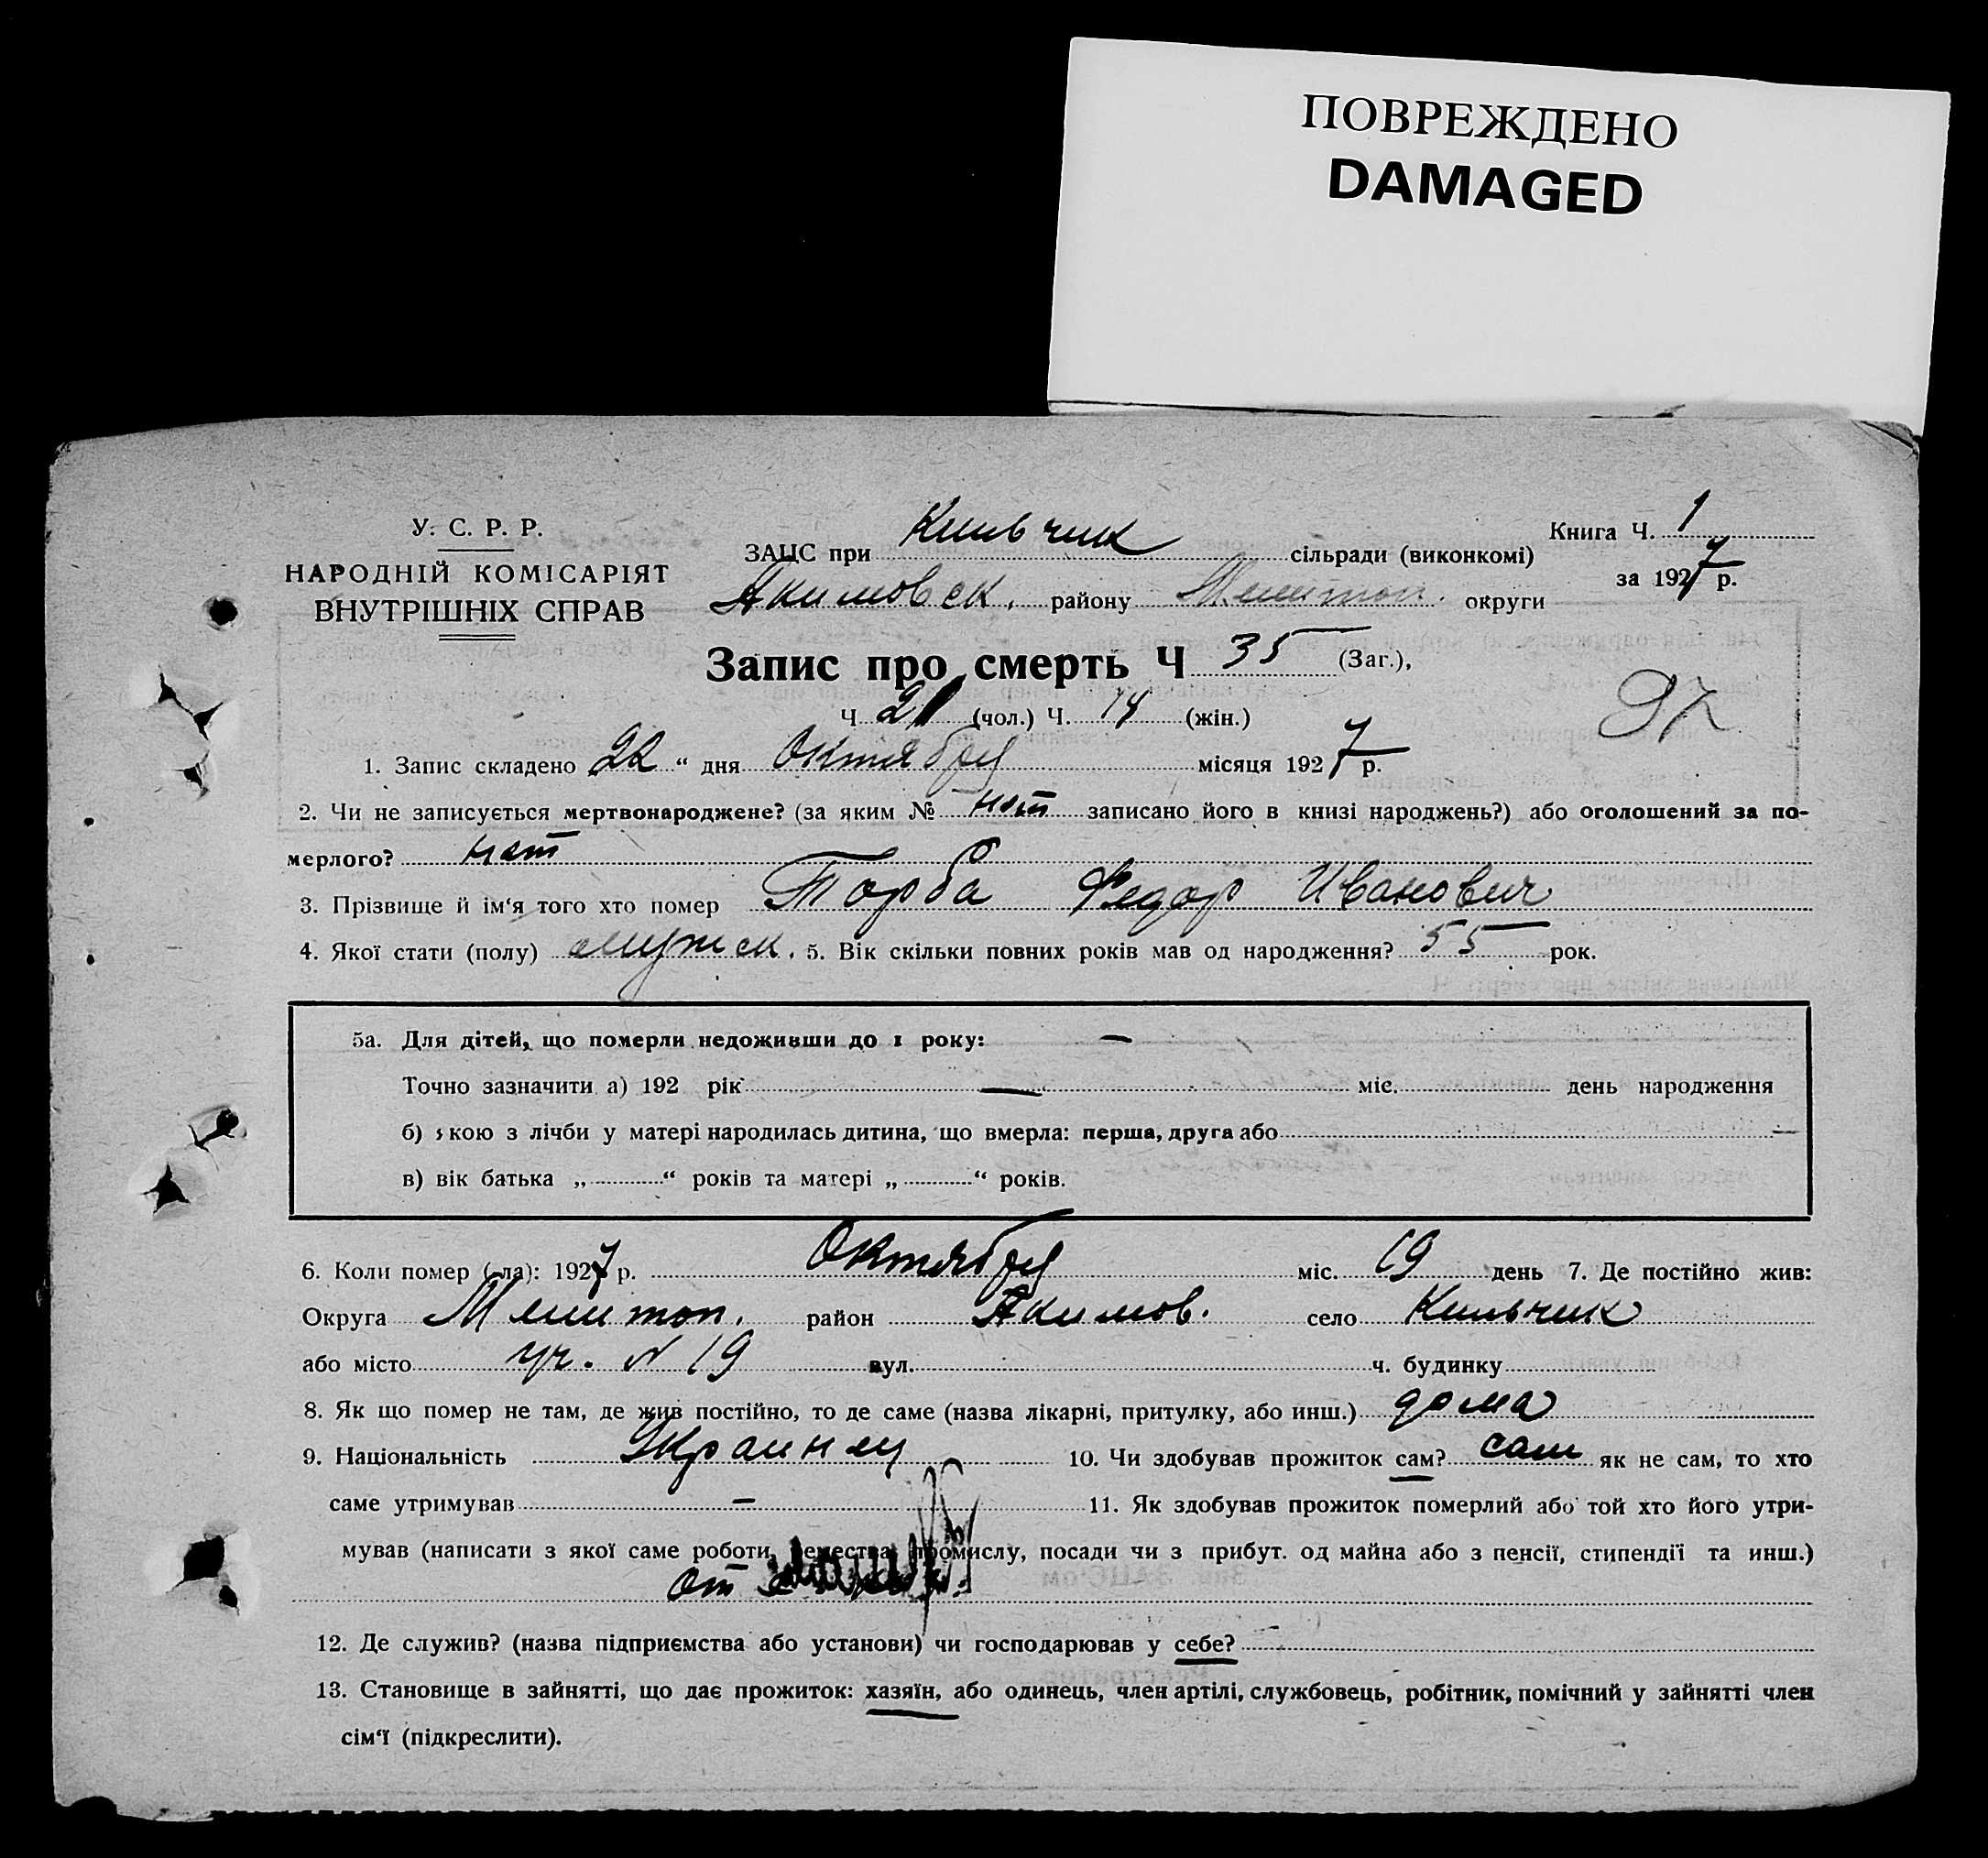 ПОВРЕЖДЕНО
DAMAGED
У. С. Р. Р.
НАРОДНІЙ КОМІСАРІЯТ
ВНУТРІШНІХ СПРАВ
ЗАЦС при Кильчик сільради (виконкомі)
Книга Ч. 1
за 1927 р.
Якимовск. району Мелитоп. округи
Запис про смерть Ч 35 (Заг.),
Ч 21 (чол.) Ч. 14 (жін.)
97
1. Запис складено 22 “ дня Октября місяця 1927 р.
2. Чи не записується мертвонароджене? (за яким № нет записано його в книзі народжень?) або оголошений за по-
мерлого? нет
3. Прізвище й ім‘я того хто помер Торба Федор Иванович
4. Якої стати (полу) мужск. 5. Вік скільки повних років мав од народження? 55 рок.
5а. Для дітей, що померли недоживши до 1 року: —
Точно зазначити а) 192 рік — міс. день народження
б) якою з лічби у матері народилась дитина, що вмерла: перша, друга або —
в) вік батька „ “ років та матері „ “ років.
6. Коли помер (-ла): 1927 р. Октября міс. 19 день 7. Де постійно жив:
Округа Мелитоп. район Якимов. село Кильчик
або місто уч. № 19 вул. ч. будинку
8. Як що помер не там, де жив постійно, то де саме (назва лікарні, притулку, або инш.) дома
9. Національність 10. Чи здобував прожиток сам? сам як не сам, то хто
саме утримував — 11. Як здобував прожиток померлий або той хто його утри-
мував (написати з якої саме роботи, ремества, промислу, посади чи з прибут. од майна або з пенсії, стипендії та инш.)
от
12. Де служив? (назва підприємства або установи) чи господарював у себе?
13. Становище в зайнятті, що дає прожиток: хазяїн, або одинець, член артілі, службовець, робітник, помічний у зайнятті член
сім‘ї (підкреслити).